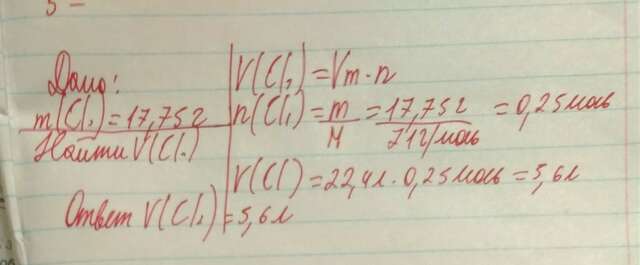 5 –
Дано:
m(Cl₂) = 17,75г
Найти V(Cl₂)
V(Cl₂) = Vm · n
n(Cl₂) = m/M = 17,75г/71г/моль = 0,25моль
V(Cl) = 22,4л · 0,25моль = 5,6л
Ответ V(Cl₂) = 5,6л